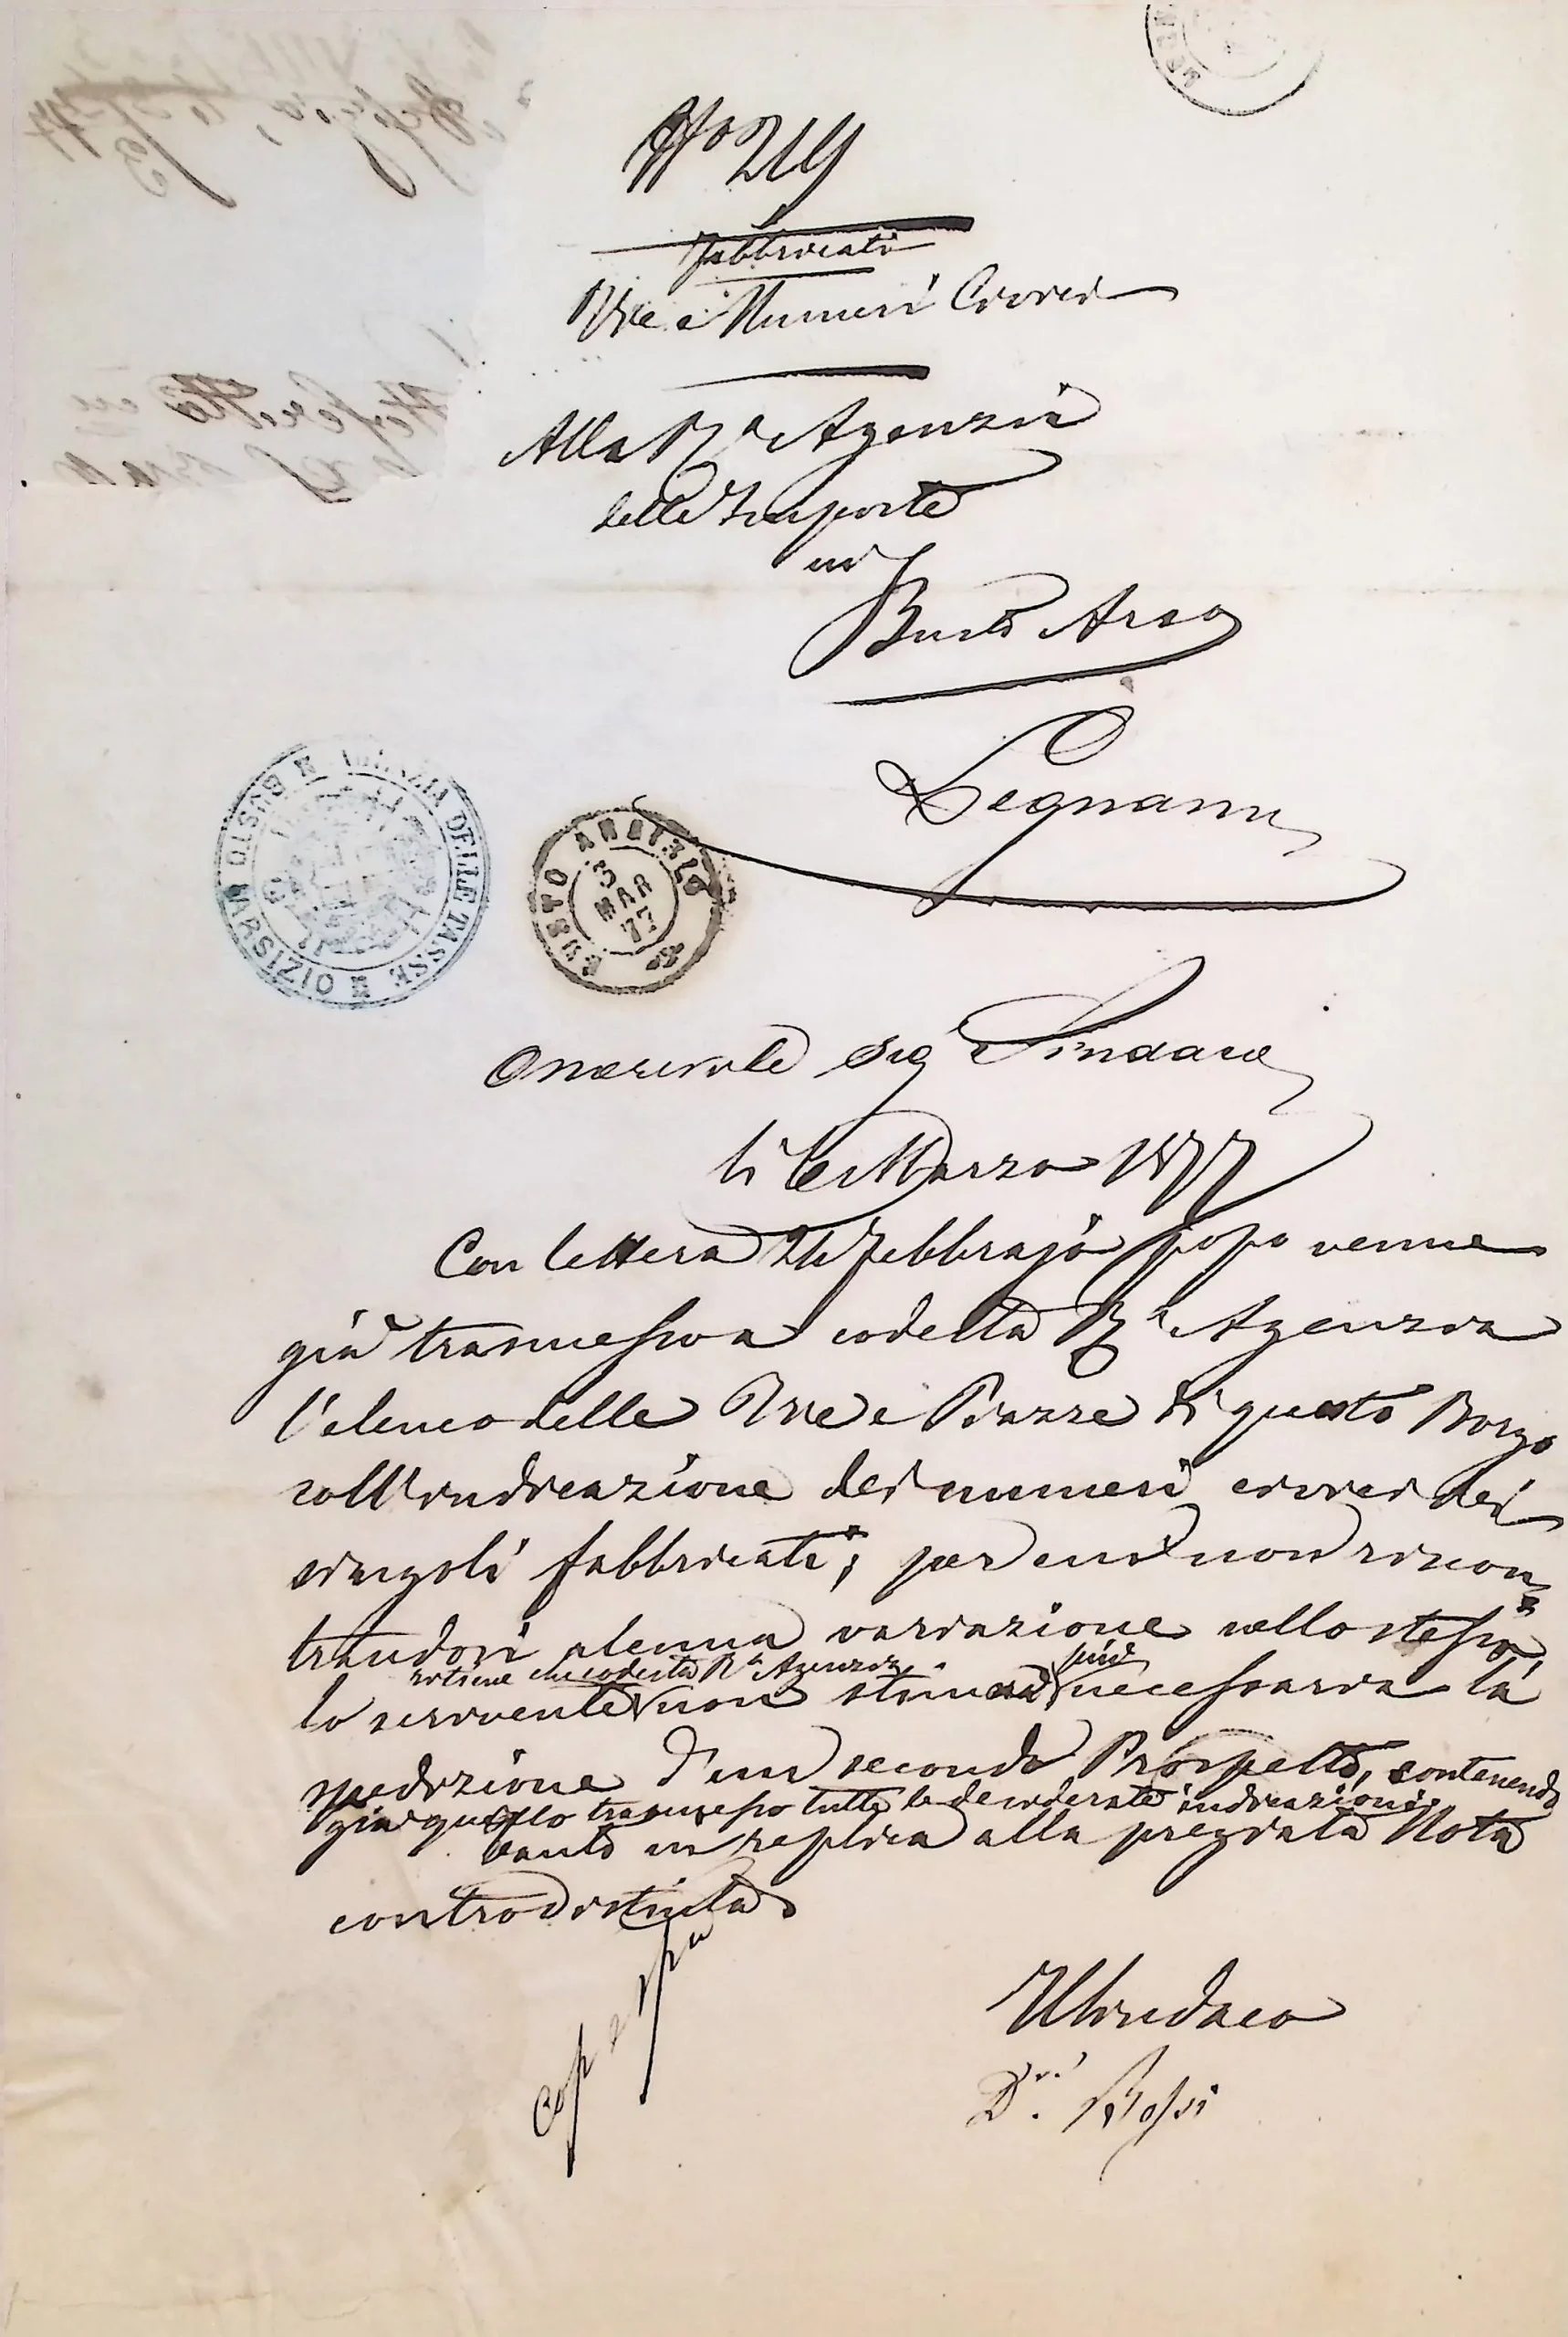 N° 219
Fabbricati
Vie e Numeri Civici
Alla R.a Agenzia
delle Imposte
in
Busto Arso
Legnano
AGENZIA DELLE TASSE
BUSTO ARSIZIO
BUSTO ARSIZIO
5 MAR 77
Onorevole Sig Sindaco
li 6 Marzo 1877
Con lettera Febbrajo popo venne
già trasmesso a codesta R.a Agenzia
l'elenco delle Vie e Piazze di questo Borgo
coll'indicazione dei numeri civici dei
singoli fabbricati; per cui non riscon
trandosi alcuna variazione nello stesso
ritiene che codesta R.a Agenzia più
lo scrivente non stimerà necessaria la
spedizione d'un secondo Prospetto, contenendo
già quello trasmesso tutte le desiderate indicazioni.
Tanto in replica alla pregiata Nota
controdistinta.
Il Sindaco
Dr. Bossi
Cop e spe